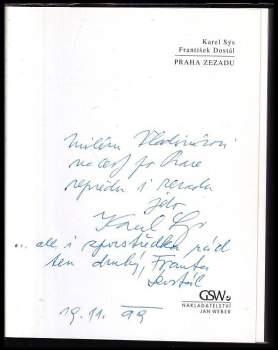 Karel Sýs
František Dostál
PRAHA ZEZADU
milému Vladimírovi
na cesty po Praze
zepředu i zezadu
Karel Sýs
... ale i zprostředka rád
ten druhý, Franta
Dostál
19.11. 99
GSW
NAKLADATELSTVÍ
JAN WEBER